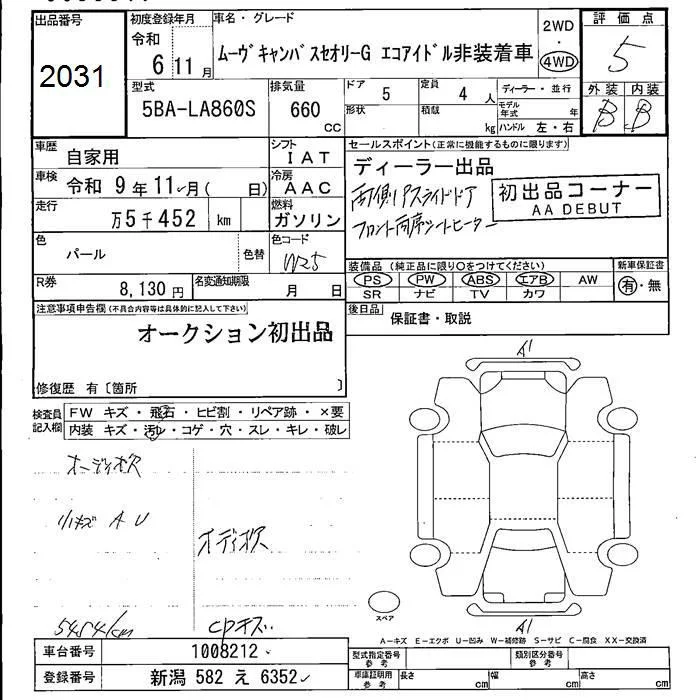 出品番号
2031
初度登録年月
令和
6年 11月
車名・グレード
ムーヴキャンバスセオリーG エコアイドル非装着車
2WD
・
4WD
評価点
5
外装 内装
B B
型式
5BA-LA860S
排気量
660
cc
ドア 5
定員 4 人
ディーラー・並行
形状
積載
kg
モデル年式 年
ハンドル 左・右
車歴 自家用
シフト
IAT
車検 令和 9年11月( 日)
冷房
AAC
走行
万5千452 km
燃料
ガソリン
色
パール
色替
色コード
W25
R券 8,130円
名変通知期限
月 日
セールスポイント(正常に機能するものに限ります)
ディーラー出品
両側パスライドドア
フロント両席シートヒーター
初出品コーナー
AA DEBUT
装備品 (純正品に限り○をつけてください)
新車保証書
PS PW ABS エアB AW
SR ナビ TV カワ
有・無
後日品
保証書・取説
注意事項申告欄(不具合内容等は具体的に記入して下さい)
オークション初出品
修復歴 有〔箇所 〕
検査員
記入欄
FW キズ・飛石・ヒビ割・リペア跡・×要
内装 キズ・汚レ・コゲ・穴・スレ・キレ・破レ
オーディオ欠
小キズ A U
オーディオ欠
5454km
CPキズ
A1
A1
スペア
A-キズ E-エクボ U-凹み W-補修跡 S-サビ C-腐食 XX-交換済
車台番号 1008212
登録番号 新潟 582 え 6352
型式指定番号
参考
類別区分番号
参考
車庫証明用
参考
長さ cm
幅 cm
高さ cm